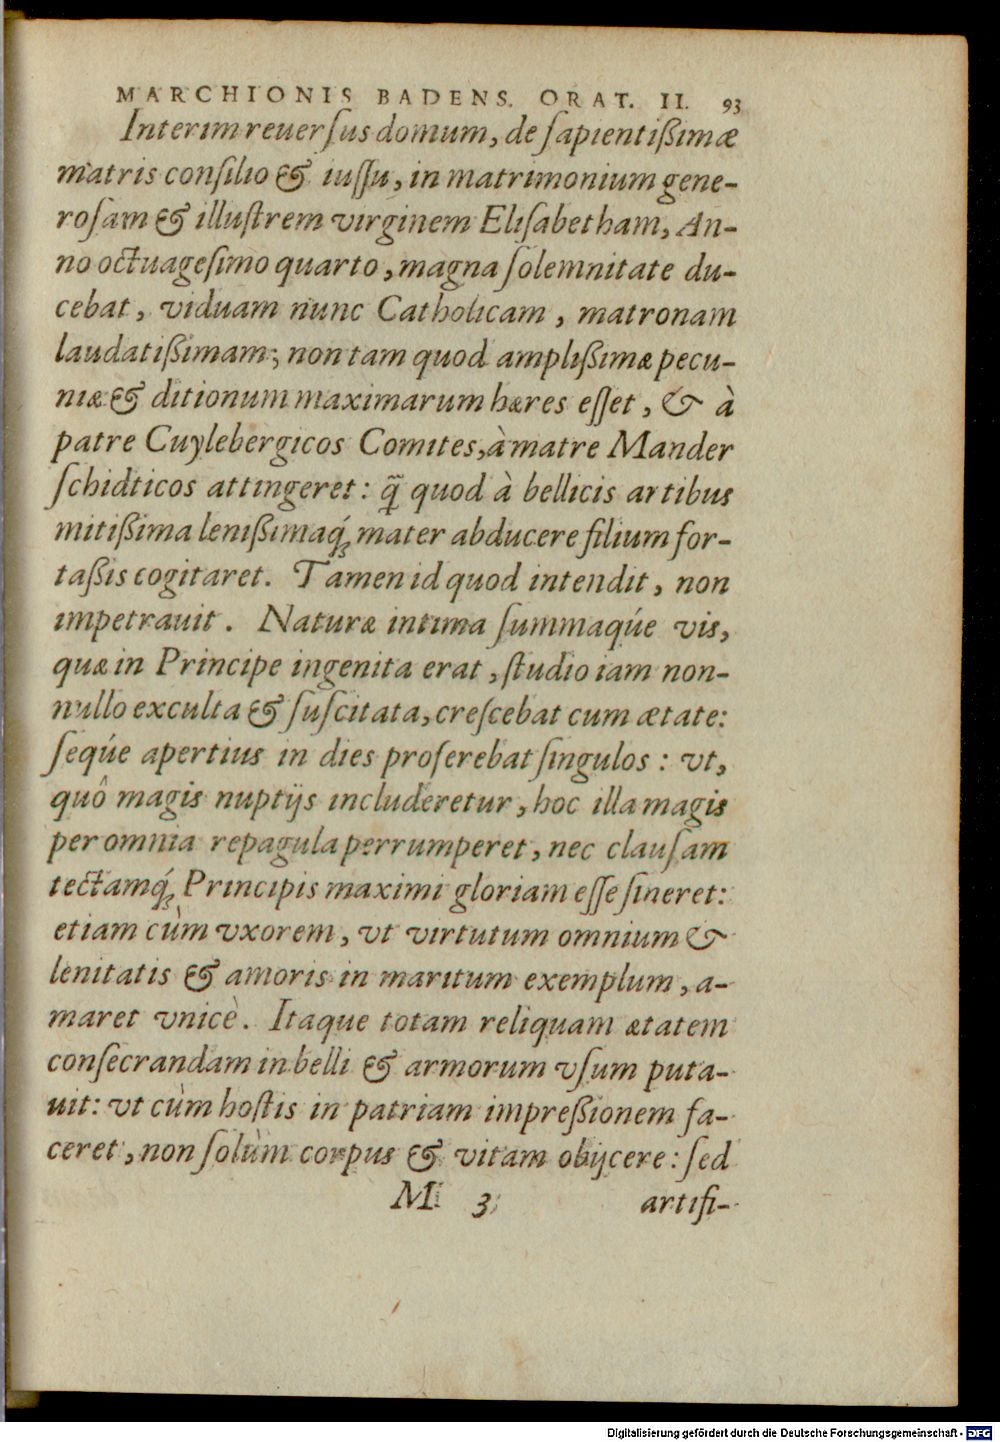 MARCHIONIS BADENS. ORAT. II. 93
Interim reuerſus domum, de ſapientißimæ
matris conſilio & iuſſu, in matrimonium gene-
roſam & illuſtrem virginem Eliſabetham, An-
no octuageſimo quarto, magna ſolemnitate du-
cebat, viduam nunc Catholicam, matronam
laudatißimam; non tam quod amplißimæ pecu-
niæ & ditionum maximarum hæres eſſet, & à
patre Cuylebergicos Comites, à matre Mander
ſchidticos attingeret: q̃ quod à bellicis artibus
mitißima lenißimaq́; mater abducere filium for-
taßis cogitaret. Tamen id quod intendit, non
impetrauit. Naturæ intima ſummaqúe vis,
quæ in Principe ingenita erat, ſtudio iam non-
nullo exculta & ſuſcitata, creſcebat cum ætate:
ſeqúe apertius in dies proferebat ſingulos: vt,
quô magis nuptijs includeretur, hoc illa magis
per omnia repagula perrumperet, nec clauſam
tectamq́; Principis maximi gloriam eſſe ſineret:
etiam cùm vxorem, vt virtutum omnium &
lenitatis & amoris in maritum exemplum, a-
maret vnicè. Itaque totam reliquam ætatem
conſecrandam in belli & armorum vſum puta-
uit: vt cùm hoſtis in patriam impreßionem fa-
ceret, non ſolùm corpus & vitam obijcere: ſed
M 3 artifi-
Digitalisierung gefördert durch die Deutsche Forschungsgemeinschaft - DFG